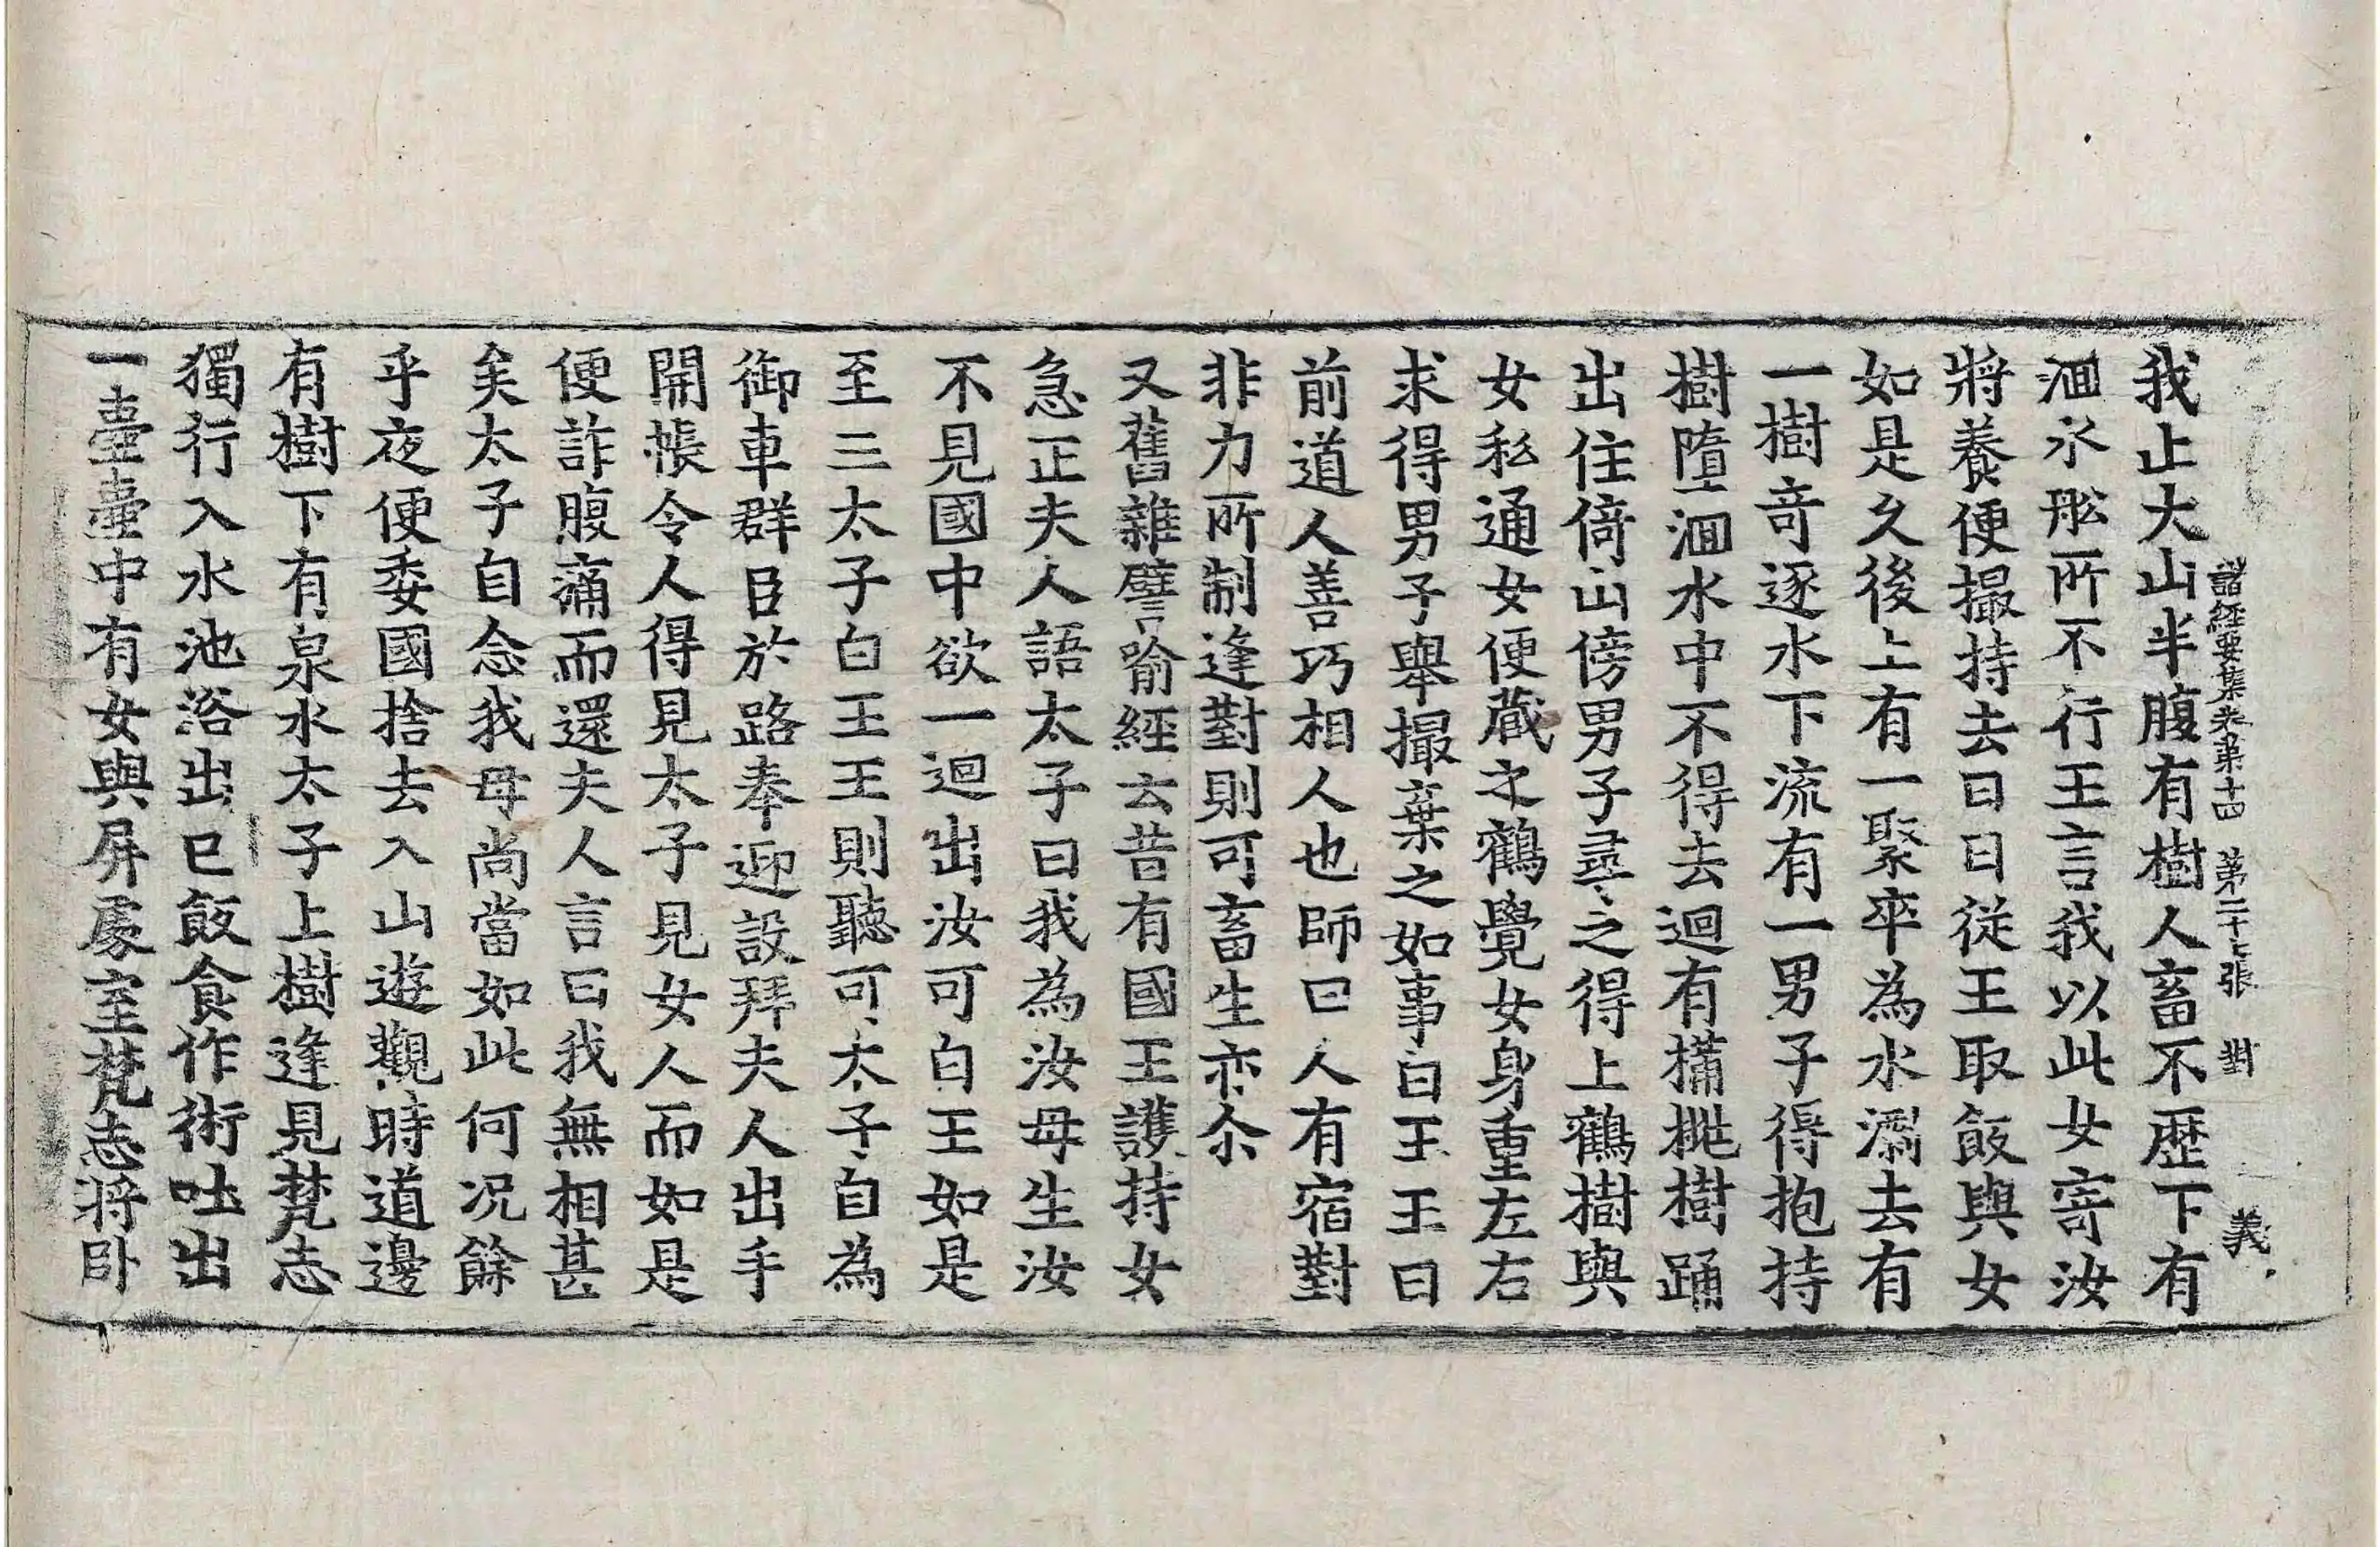 諸經要集卷第十四 第二十七張 對 義
我止大山半腹有樹人畜不歷下有
洄水舩所不行王言我以此女寄汝
將養便撮持去日日從王取飯與女
如是久後上有一聚卒為水漂去有
一樹竒逐水下流有一男子得抱持
樹墮洄水中不得去迴有𣔙桃樹踊
出住倚山傍男子尋之得上鶴樹與
女私通女便藏之鶴覺女身重左右
求得男子舉撮棄之如事白王王曰
前道人善巧相人也師曰人有宿對
非力所制逢對則可畜生亦尒
又舊雜譬喻經云昔有國王護持女
急正夫人語太子曰我為汝母生汝
不見國中欲一迴出汝可白王如是
至三太子白王王則聽可太子自為
御車群臣於路奉迎設拜夫人出手
開帳令人得見太子見女人而如是
便詐腹痛而還夫人言曰我無相甚
矣太子自念我母尚當如此何况餘
乎夜便委國捨去入山遊觀時道邊
有樹下有泉水太子上樹逢見梵志
獨行入水池浴出已飯食作術吐出
一臺臺中有女與屏處室梵志將卧